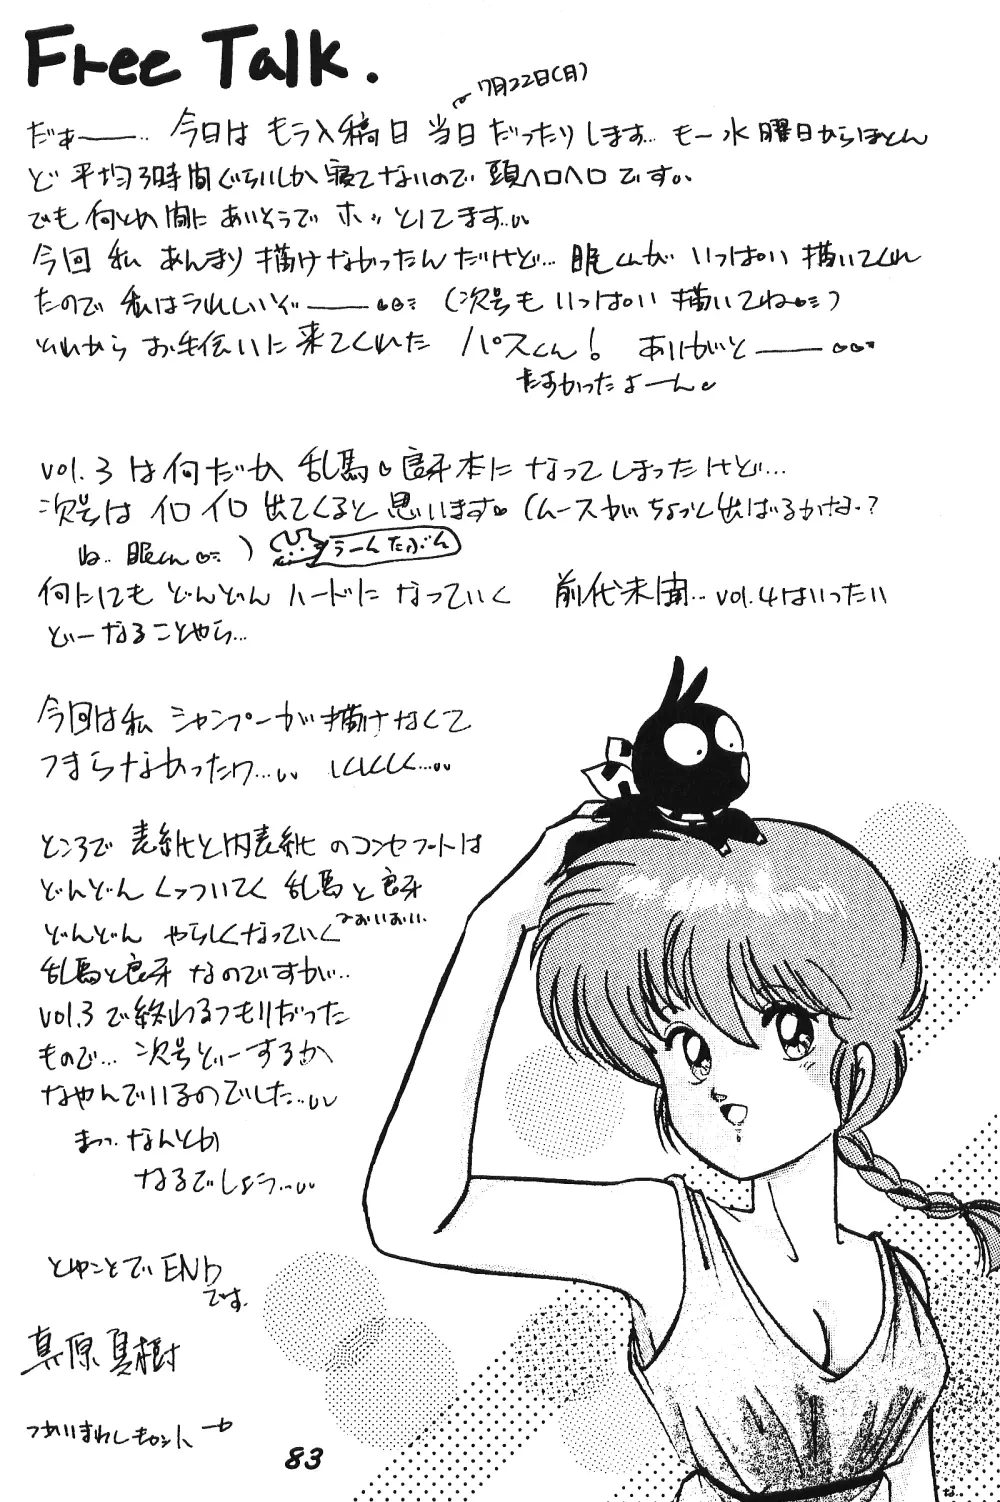 Free Talk.
7月22日(月)
だぁー‥ 今日は もう入稿日 当日だったりします… もー水曜日からほとん
ど 平均3時間ぐらいしか 寝てないので 頭ヘロヘロです
でも 何とか 間に あいそうで ホッ としてます
今回 私 あんまり 描けなかったんだけど… 眠くんが いっぱい 描いてくれ
たので 私はうれしいぞー (次号も いっぱい 描いてね)
それから お手伝いに 来てくれた パスくん! ありがとー
たすかったよーん
vol.3 は何だか 乱馬 良牙本に なってしまったけど…
次号は イロイロ 出てくると 思います (ムースがちょっと出ばるかな?
ね‥ 眠くん )
うーんたぶん
何にしても どんどん ハードに なっていく 前代未聞‥ vol.4はいったい
どーなることやら…
今回は私 シャンプーが描けなくて
つまらなかったワ… しくしく…
ところで 表紙と内表紙のコンセプトは
どんどん くっついてく 乱馬と良牙
どんどん やらしくなっていく
おいおい
乱馬と良牙 なのですが‥
vol.3で終わるつもりだった
もので… 次号どーするか
なやんでいるのでした
まっ なんとか
なるでしょう
とゆことで END
です
真原真樹
83